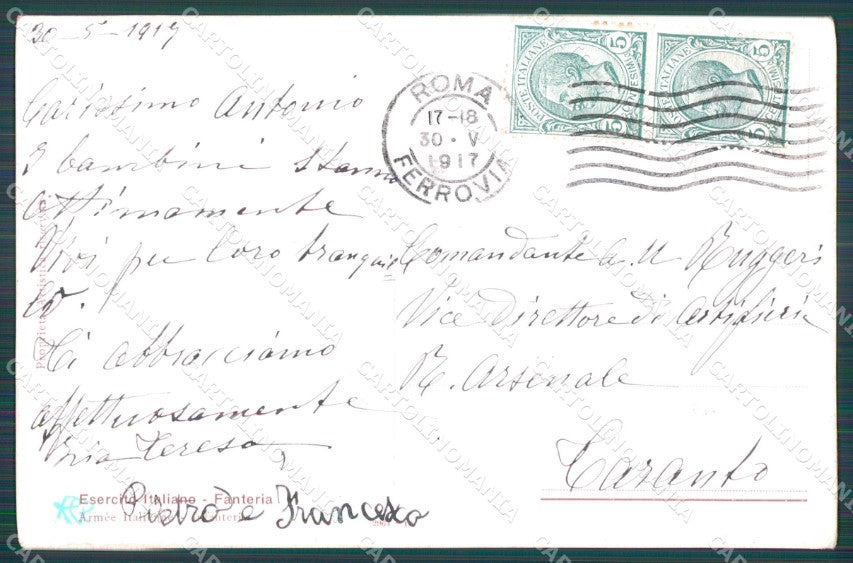 30-5-1917
Carissimo Antonio
I bambini stanno
ottimamente
Vivi per loro tranquil
lo.
Ti abbracciamo
affettuosamente
Teresa
Pietro e Francesco
ROMA
17-18
30 · V
1917
FERROVIA
POSTE ITALIANE
5
5
POSTE ITALIANE
5
5
Comandante A. M Ruggeri
Vice Direttore di Artiglieria
R. Arsenale
Taranto
Esercito Italiano - Fanteria
Armée
CARTOLINOMANIA